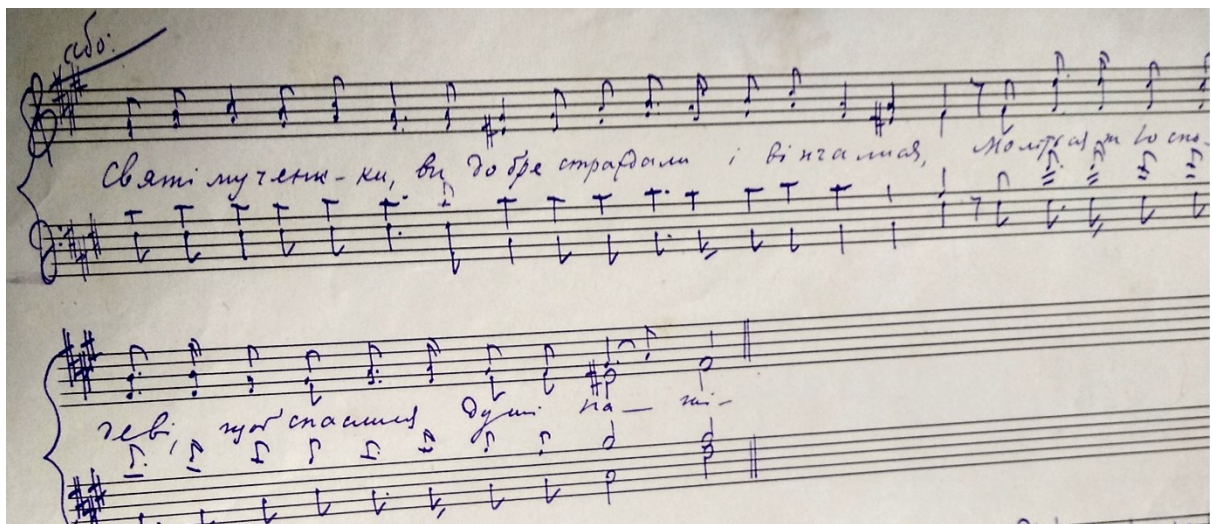 або:
Святі мучени-ки, ви добре страждали і вінчалися, Молітся ж Госпо-
деві, щоб спаслися душі на-ші-